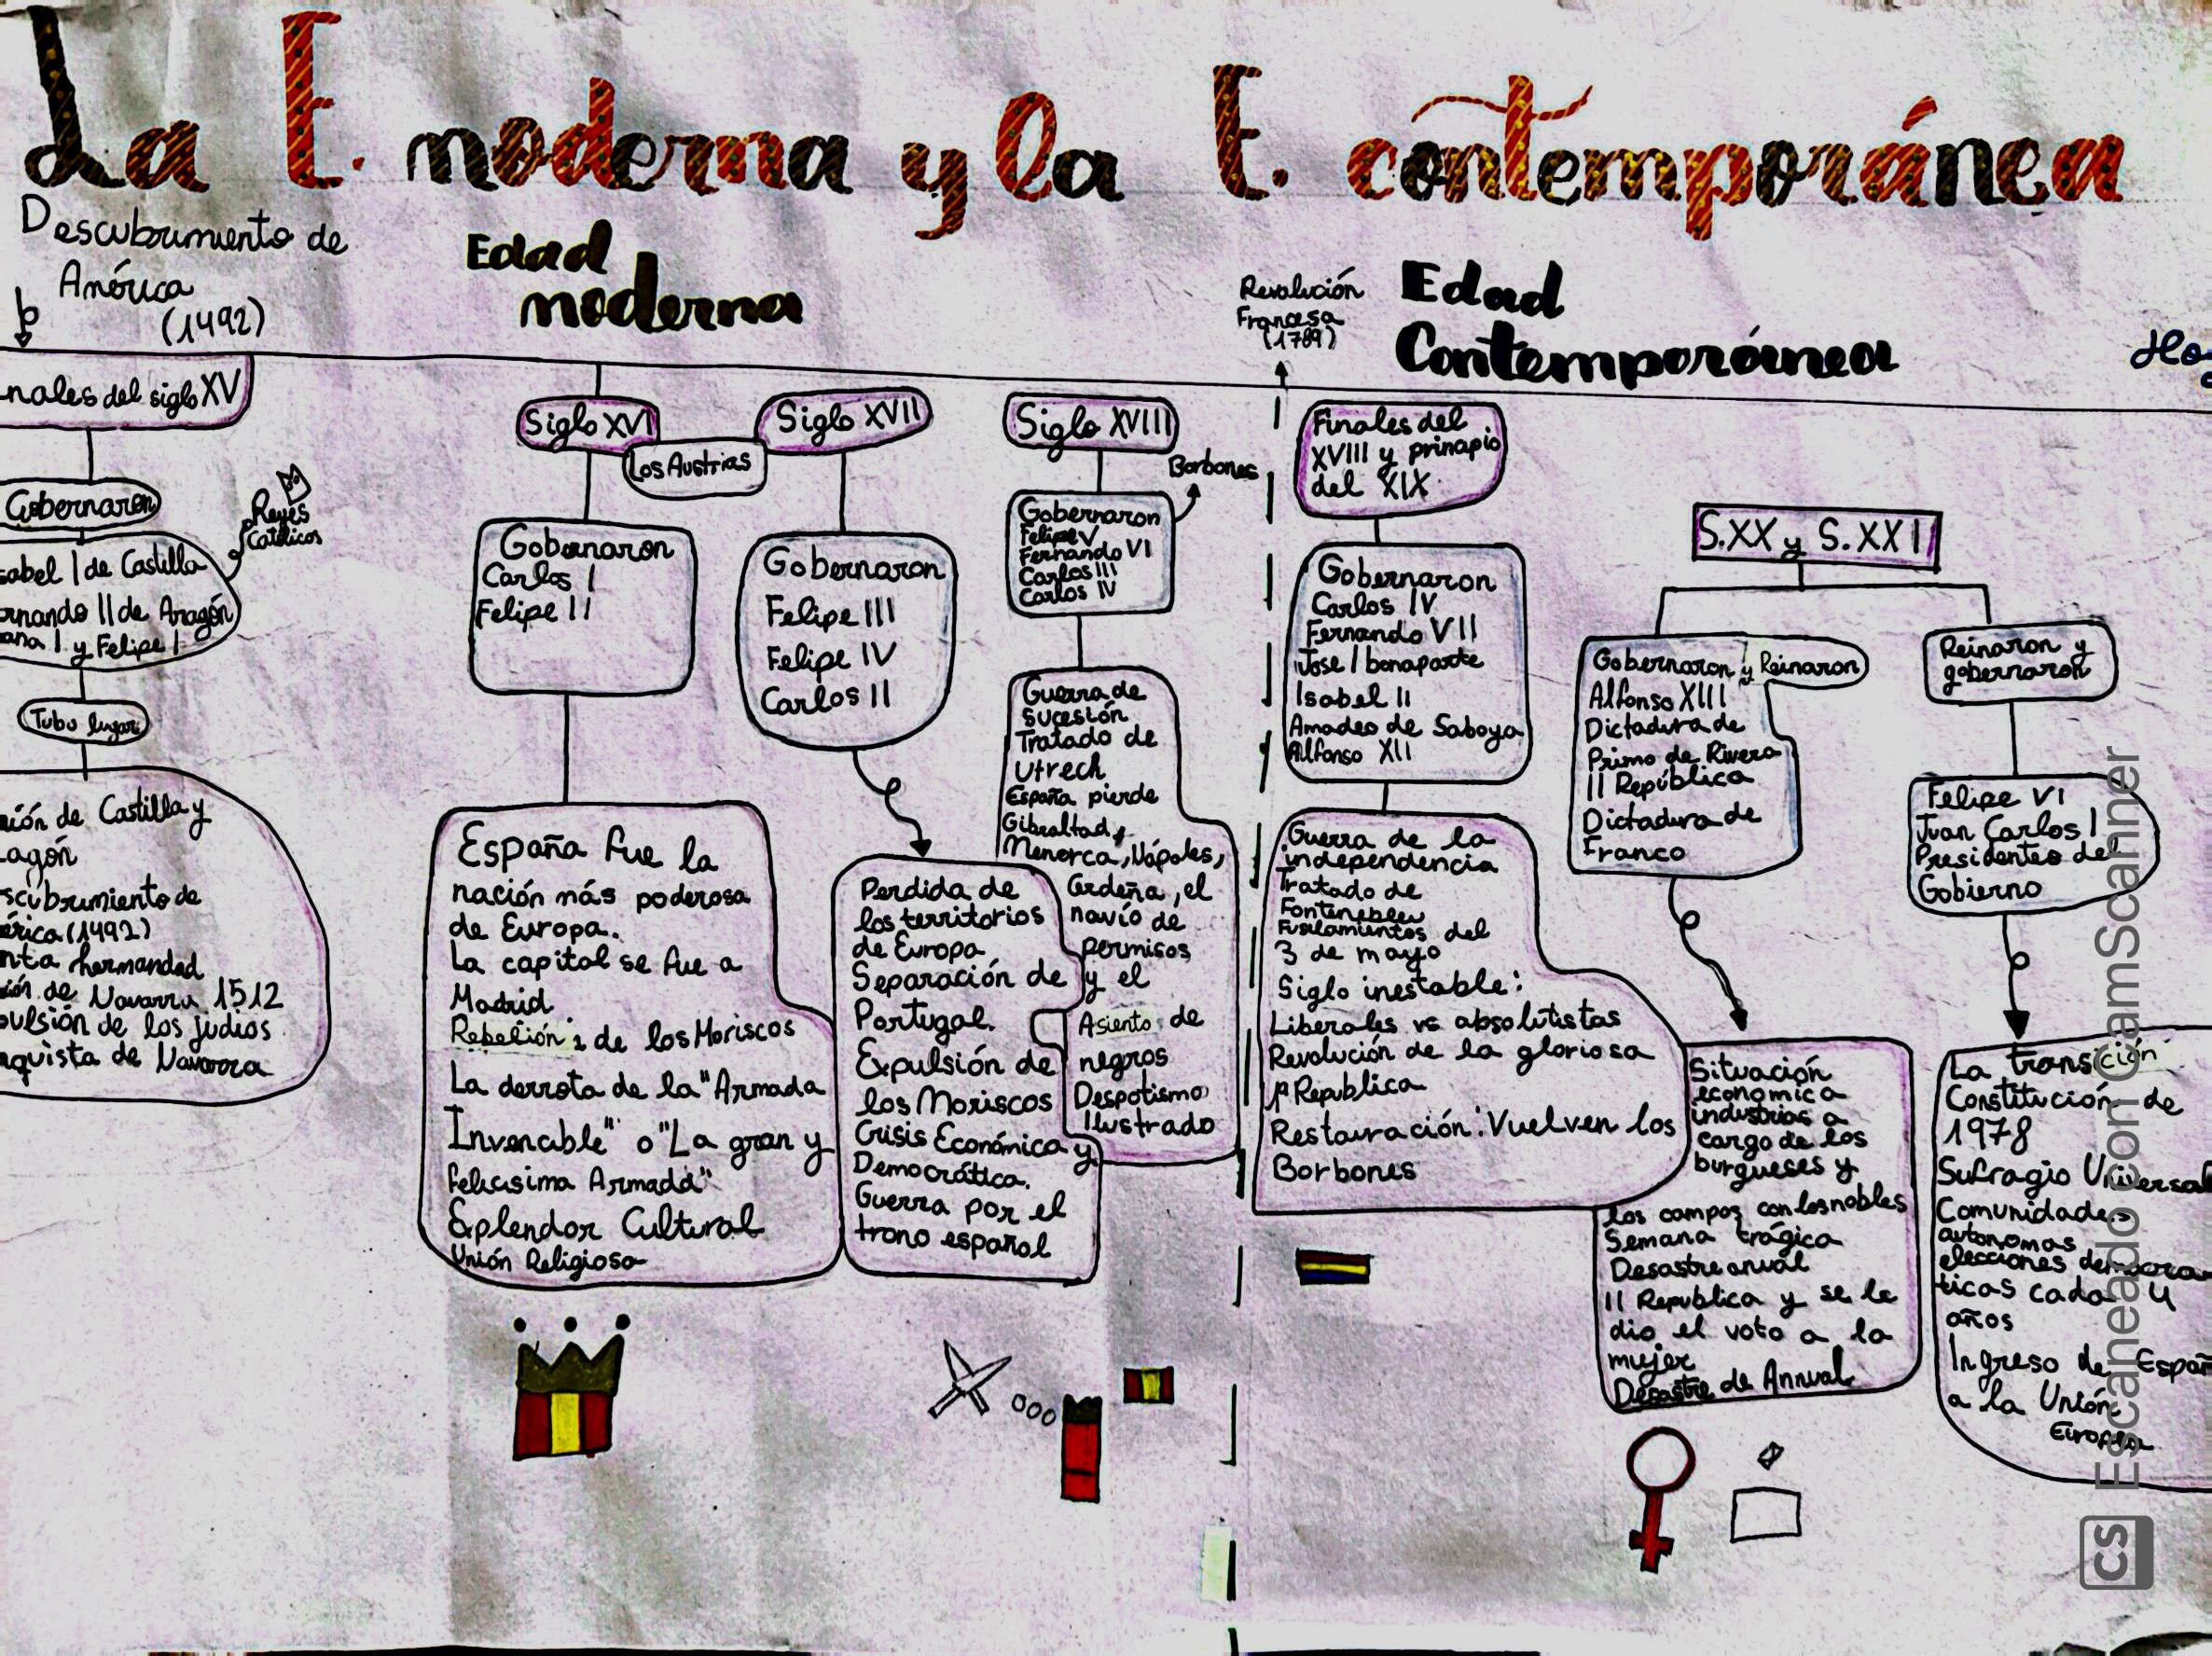 La E. moderna y la E. contemporánea
Descubrimiento de
América
(1492)
Edad
moderna
Revolución
Francesa
(1789)
Edad
Contemporánea
nales del siglo XV
Gobernaron
Reyes
Católicos
sabel I de Castilla
rnando II de Aragón
ana I y Felipe I
Tubo lugar
nión de Castilla y
agón
scubrimiento de
érica (1492)
nta hermandad
sión de Navarra 1512
pulsión de los judios
nquista de Navarra
Siglo XVI
Los Austrias
Siglo XVII
Gobernaron
Carlos I
Felipe II
España fue la
nación más poderosa
de Europa.
La capital se fue a
Madrid
Rebelión de los Moriscos
La derrota de la "Armada
Invencible" o "La gran y
felicisima Armada"
Explendor Cultural
Unión Religiosa
Gobernaron
Felipe III
Felipe IV
Carlos II
Perdida de
los territorios
de Europa
Separación de
Portugal.
Expulsión de
los Moriscos
Crisis Económica y
Democrática.
Guerra por el
trono español
Siglo XVIII
Borbones
Gobernaron
Felipe V
Fernando VI
Carlos III
Carlos IV
Guerra de
sucesión
Tratado de
Utrech
España pierde
Gibraltad,
Menorca, Nápoles,
Cerdeña, el
navío de
permisos
y el
Asiento de
negros
Despotismo
Ilustrado
Finales del
XVIII y prinapio
del XIX
Gobernaron
Carlos IV
Fernando VII
Jose I bonaparte
Isabel II
Amadeo de Saboya
Alfonso XII
Guerra de la
independencia
Tratado de
Fontenebleu
Fusilamientos del
3 de mayo
Siglo inestable:
Liberales vs absolutistas
Revolución de la gloriosa
1ª Republica
Restauración: Vuelven los
Borbones
S.XX y S.XXI
Gobernaron y Reinaron
Alfonso XIII
Dictadura de
Primo de Rivera
II República
Dictadura de
Franco
Situación
economica
industrias a
cargo de los
burgueses y
los campos con los nobles
Semana trágica
Desastre anual
II Republica y se le
dio el voto a la
mujer
Desastre de Annual
Reinaron y
gobernaron
Felipe VI
Juan Carlos I
Presidentes del
Gobierno
La transición
Constitución de
1978
Sufragio Universal
Comunidades
autonomas
elecciones democra
ticas cada 4
años
Ingreso de Españ
a la Unión
Europea
Escaneado con CamScanner
CS